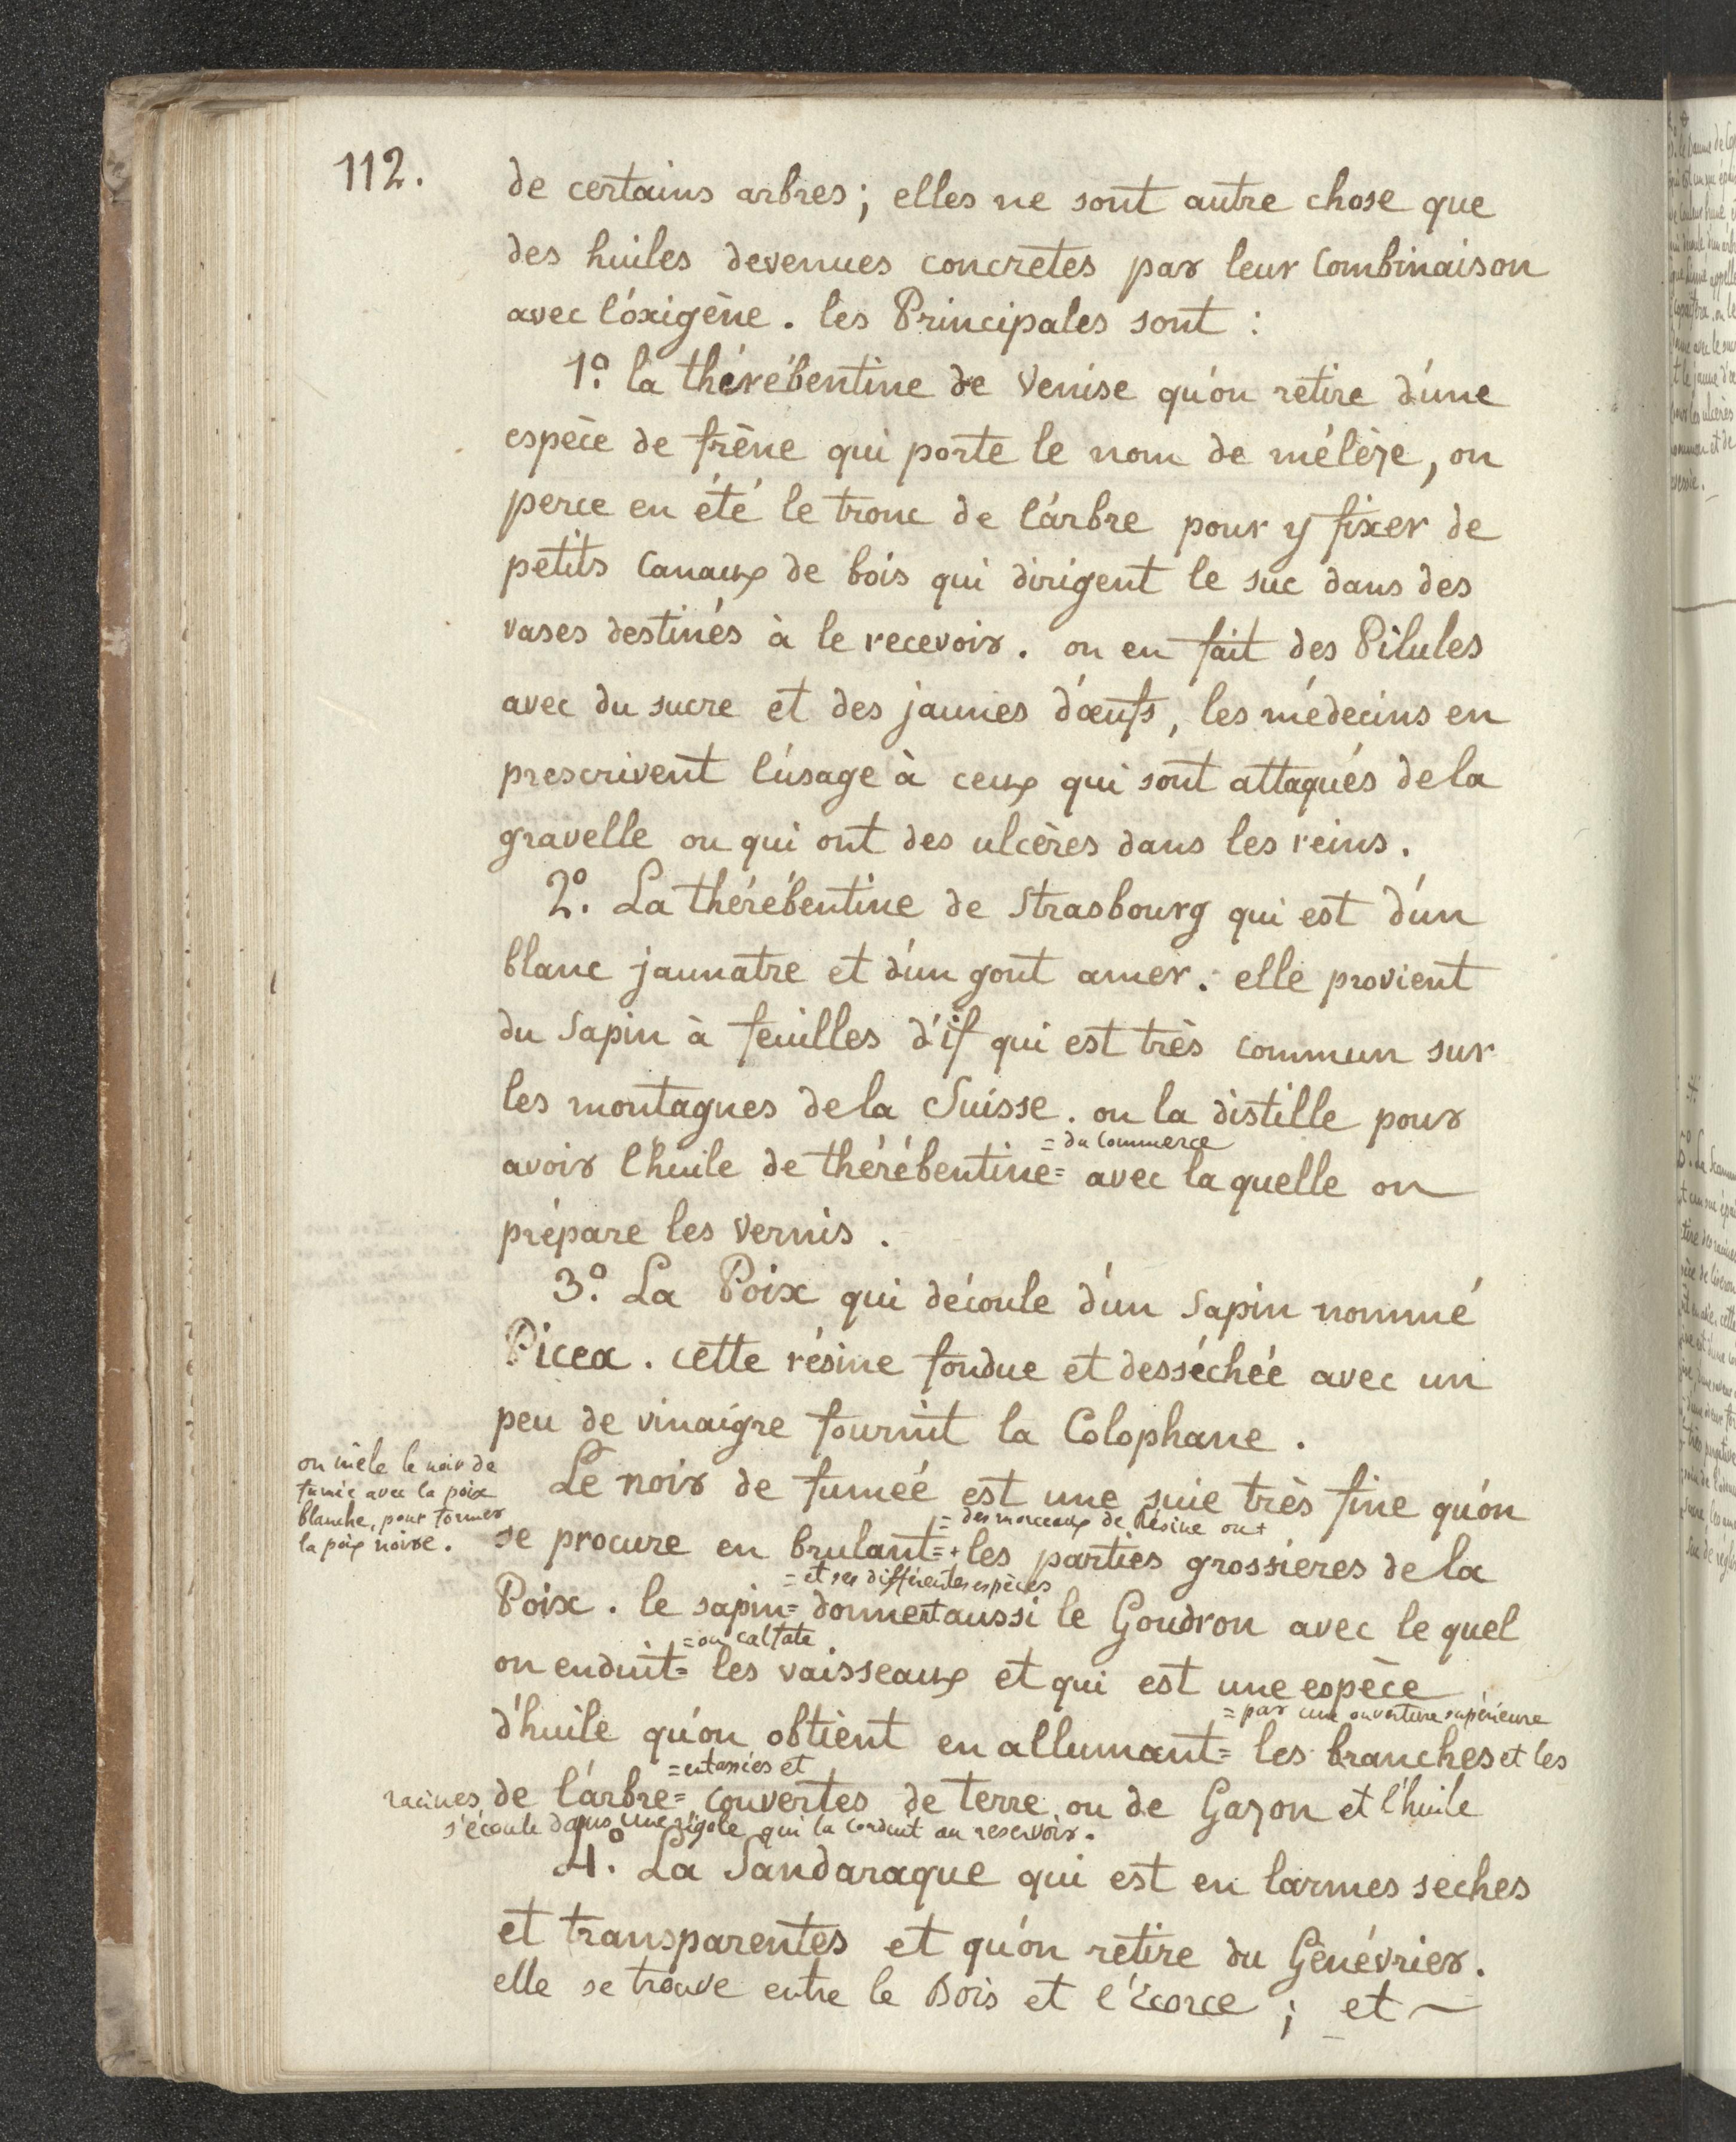 112.
de certains arbres; elles ne sont autre chose que
des huiles devenues concretes par leur Combinaison
avec l'óxigène. les Principales sont :
1.º la thérébentine de Venise qu'on retire d'une
espèce de frêne qui porte le nom de mélèze, on
perce en été le tronc de l'arbre pour y fixer de
petits Canaux de bois qui dirigent le suc dans des
vases destinés à le recevoir. on en fait des Pilules
avec du sucre et des jaunes d'œufs, les médecins en
prescrivent l'usage à ceux qui sont attaqués de la
gravelle ou qui ont des ulcères dans les reins.
2.º La thérébentine de Strasbourg qui est d'un
blanc jaunatre et d'un gout amer. elle provient
du Sapin à feuilles d'if qui est très commun sur
les montagnes de la Suisse. on la distille pour
= du Commerce
avoir l'huile de thérébentine= avec la quelle on
prépare les Vernis.
3.º La Poix qui découle d'un Sapin nommé
Picea. cette résine fondue et desséchée avec un
peu de vinaigre fournit la Colophane.
on mêle le noir de
fumée avec la poix
blanche, pour former
la poix noire.
Le noir de fumée est une suie très fine qu'on
= des morceaux de Résine ou +
se procure en brulant=+ les parties grossieres de la
= et ses différentes espèces
Poix. le sapin= donnent aussi le Goudron avec le quel
= ou calfate
on enduit= les vaisseaux et qui est une espèce
= par une ouverture supérieure
d'huile qu'on obtient en allumant= les branches et les
= entassées et
racines de l'arbre= couvertes de terre ou de Gazon et l'huile
s'écoule dans une rigole qui la conduit au reservoir.
4.º La Sandaraque qui est en larmes seches
et transparentes et qu'on retire du Genévrier.
elle se trouve entre le Bois et l'Ecorce ; et ~